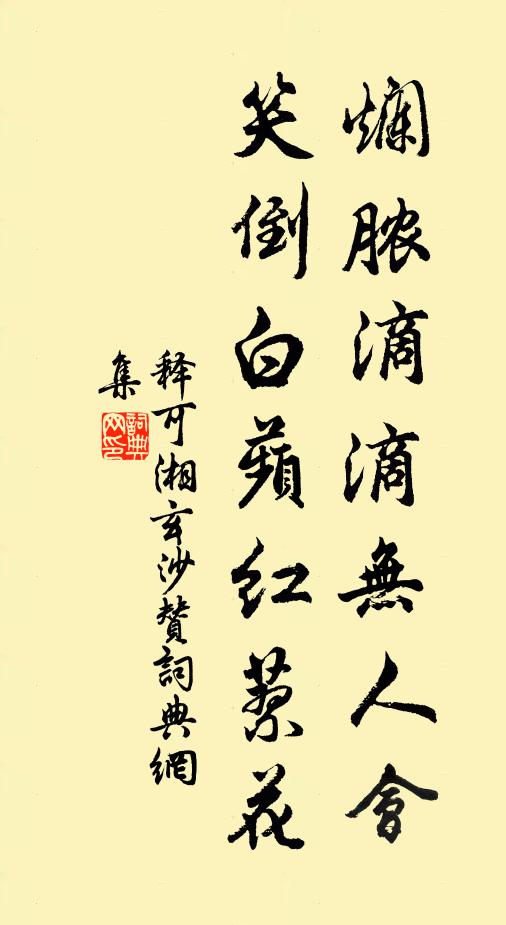 爛脓滴滴無人會
笑倒白蘋紅蓼花
释可湘玄沙賛詞典網
集
詞典网印